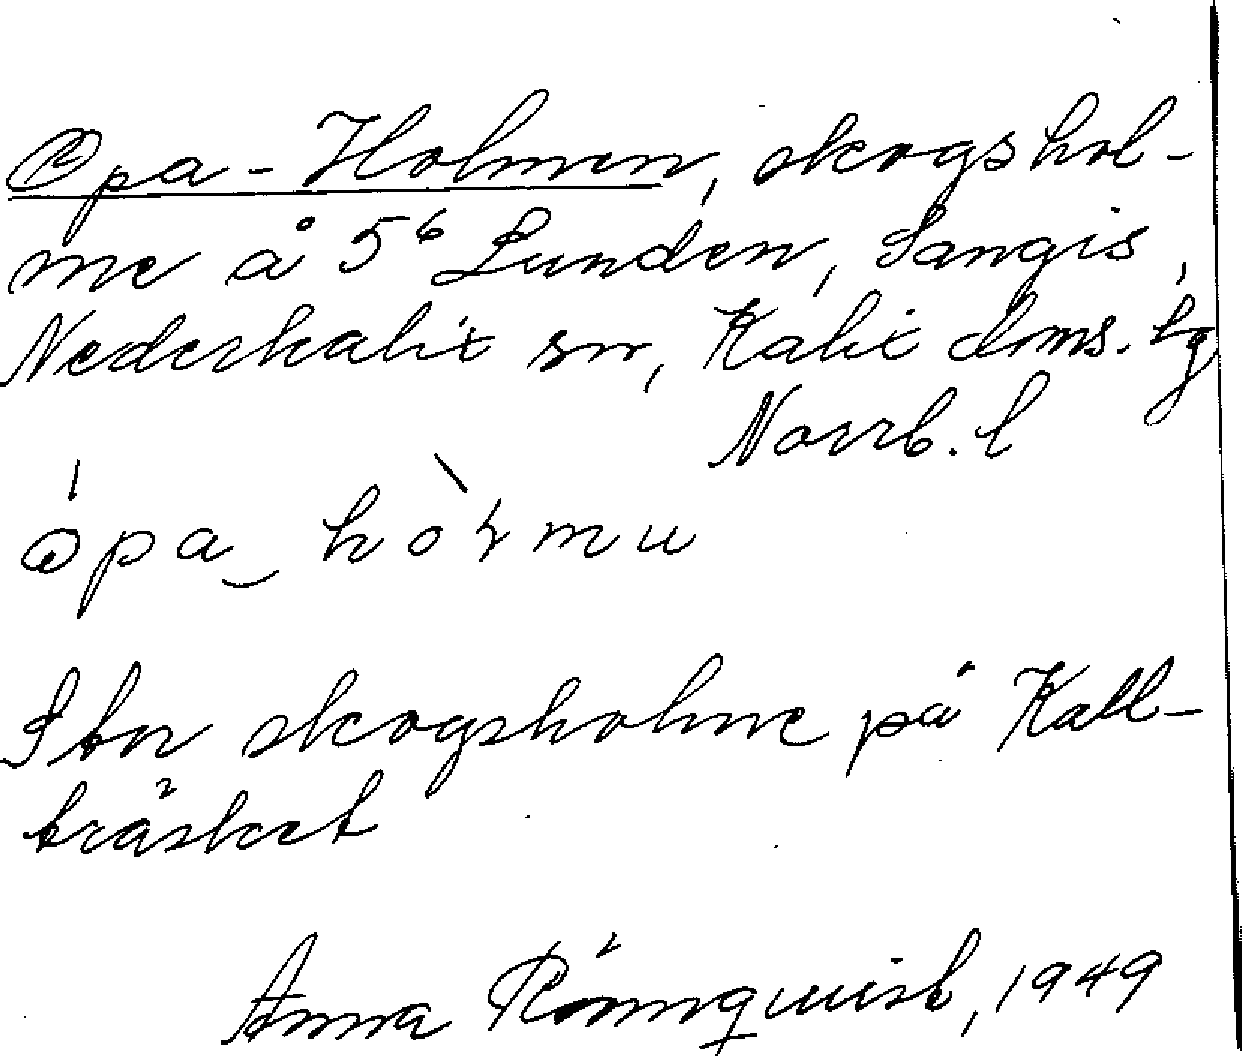 Opa-Holmen, skogshol-
me å 5⁶ Lunden, Sangis,
Nederkalix sn, Kalix dms. tg
Norrb. l
ópa hòɽmu
Stor skogsholme på Kall-
träsket
Anna Rönnquist, 1949